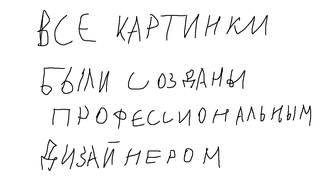 ВСЕ КАРТИНКИ
БЫЛИ СОЗДАНЫ
ПРОФЕССИОНАЛЬНЫМ
ДИЗАЙНЕРОМ